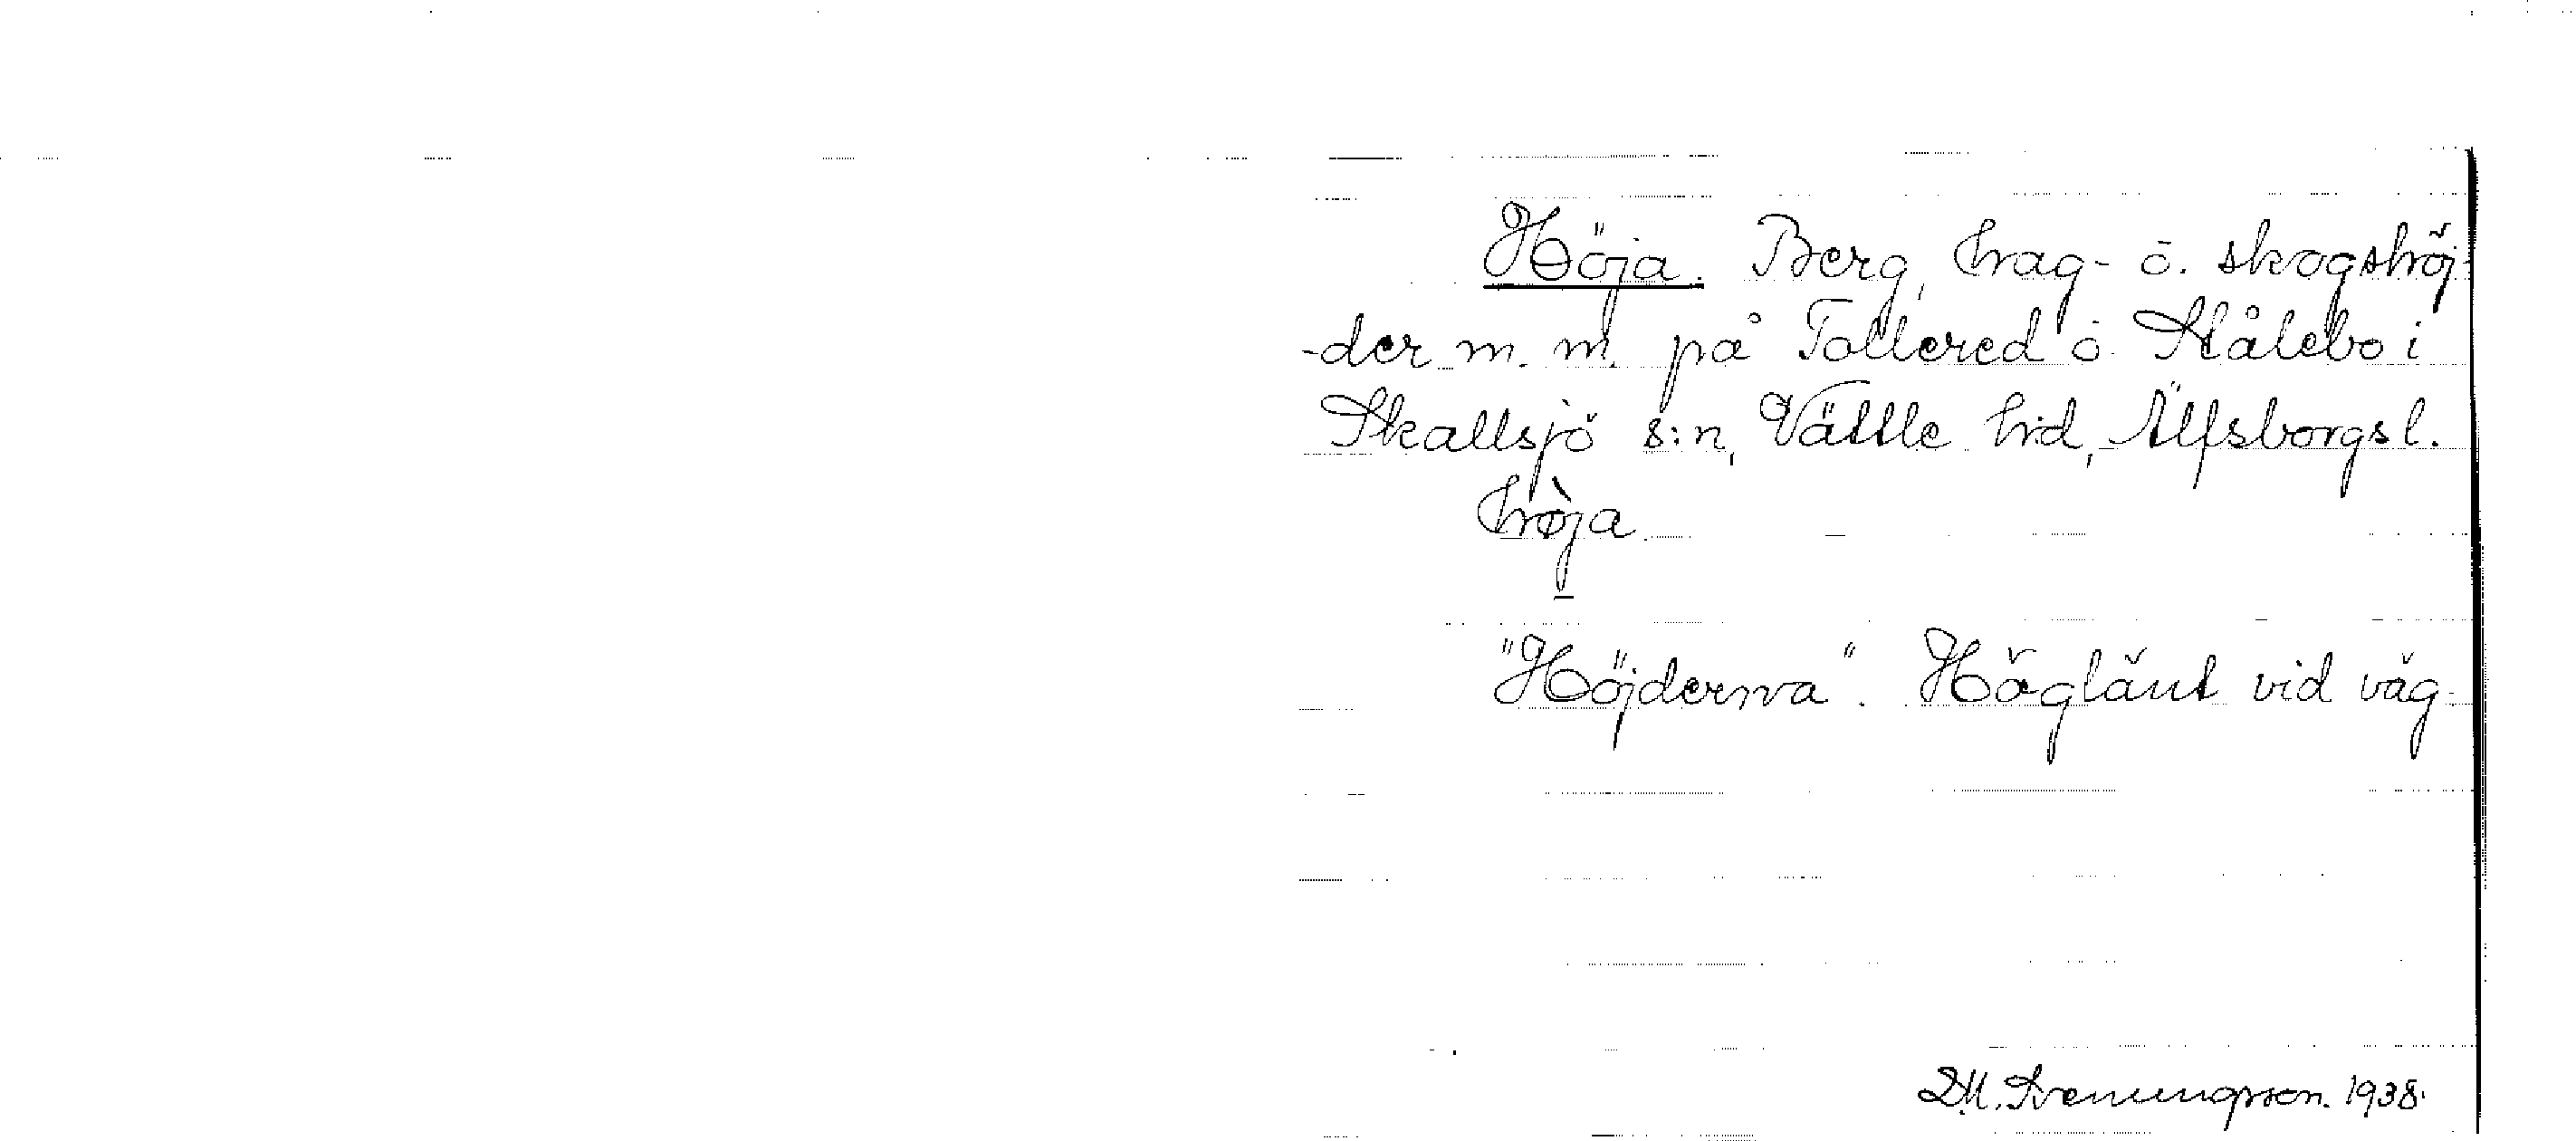 Höja. Berg, hag- o. skogshöj-
-der m. m. på Tollered o. Stålebo i
Skallsjö s:n, Vättle hd, Älfsborgs l.
hø̀ja
"Höjderna". Höglänt vid väg.
D.M. Svenungsson. 1938.